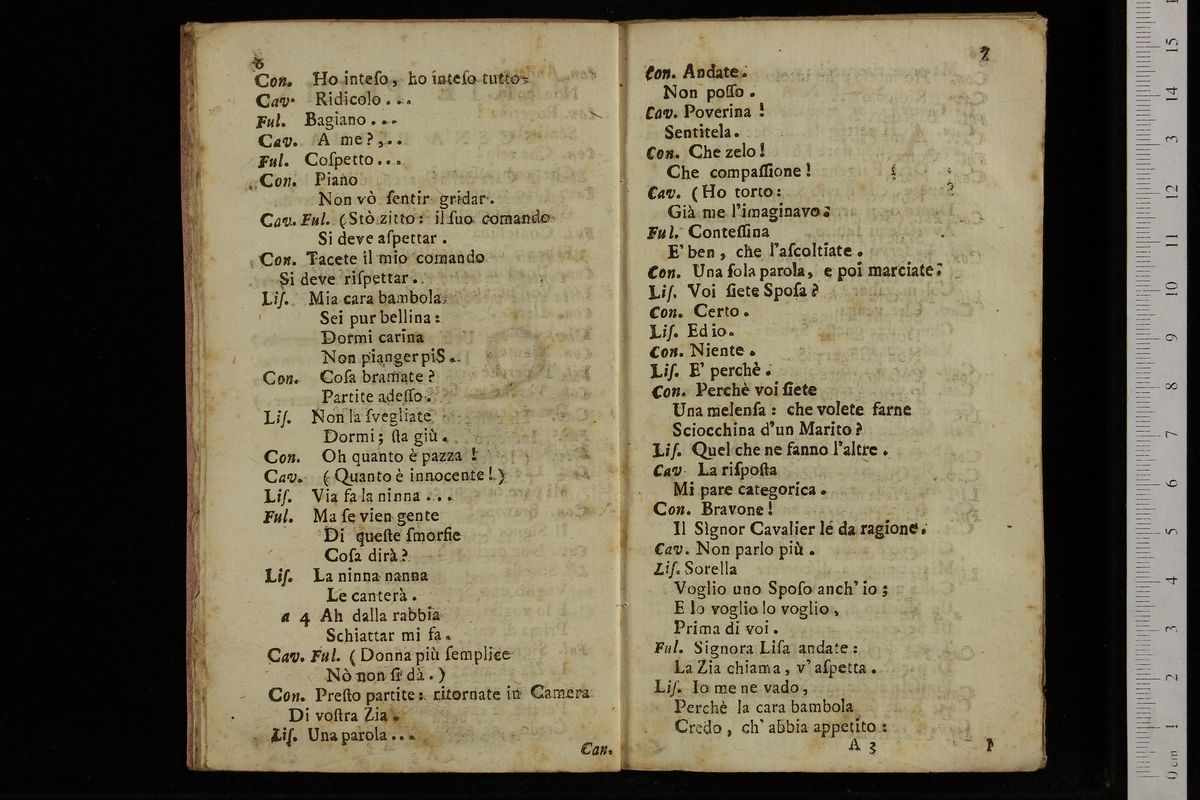 6
Con. Ho inteſo, ho inteſo tutto.
Cav. Ridicolo...
Ful. Bagiano...
Cav. A me?,..
Ful. Coſpetto...
Con. Piano
Non vò ſentir gridar.
Cav. Ful. (Stò zitto: il ſuo comando
Si deve aſpettar.
Con. Tacete il mio comando
Si deve riſpettar..
Liſ. Mia cara bambola.
Sei pur bellina:
Dormi carina
Non pianger piS..
Con. Coſa bramate?
Partite adeſſo.
Liſ. Non la ſvegliate
Dormi; ſta giù.
Con. Oh quanto è pazza!
Cav. (Quanto è innocente!)
Liſ. Via fa la ninna...
Ful. Ma ſe vien gente
Di queſte ſmorfie
Coſa dirà?
Liſ. La ninna nanna
Le canterà.
a 4 Ah dalla rabbia
Schiattar mi fa.
Cav. Ful. (Donna più ſemplice
Nò non ſi dà.)
Con. Preſto partite: ritornate in Camera
Di voſtra Zia.
Liſ. Una parola...
Can.
7
Con. Andate.
Non poſſo.
Cav. Poverina!
Sentitela.
Con. Che zelo!
Che compaſſione!
Cav. (Ho torto:
Già me l'imaginavo.
Ful. Conteſſina
E' ben, che l'aſcoltiate.
Con. Una ſola parola, e poi marciate.
Liſ. Voi ſiete Spoſa?
Con. Certo.
Liſ. Ed io.
Con. Niente.
Liſ. E' perchè.
Con. Perchè voi ſiete
Una melenſa: che volete farne
Sciocchina d'un Marito?
Liſ. Quel che ne fanno l'altre.
Cav. La riſpoſta
Mi pare categorica.
Con. Bravone!
Il Signor Cavalier lé da ragione.
Cav. Non parlo più.
Liſ. Sorella
Voglio uno Spoſo anch' io;
E lo voglio lo voglio,
Prima di voi.
Ful. Signora Liſa andate:
La Zia chiama, v' aſpetta.
Liſ. Io me ne vado,
Perchè la cara bambola
Credo, ch' abbia appetito:
A 3
0 cm 1 2 3 4 5 6 7 8 9 10 11 12 13 14 15